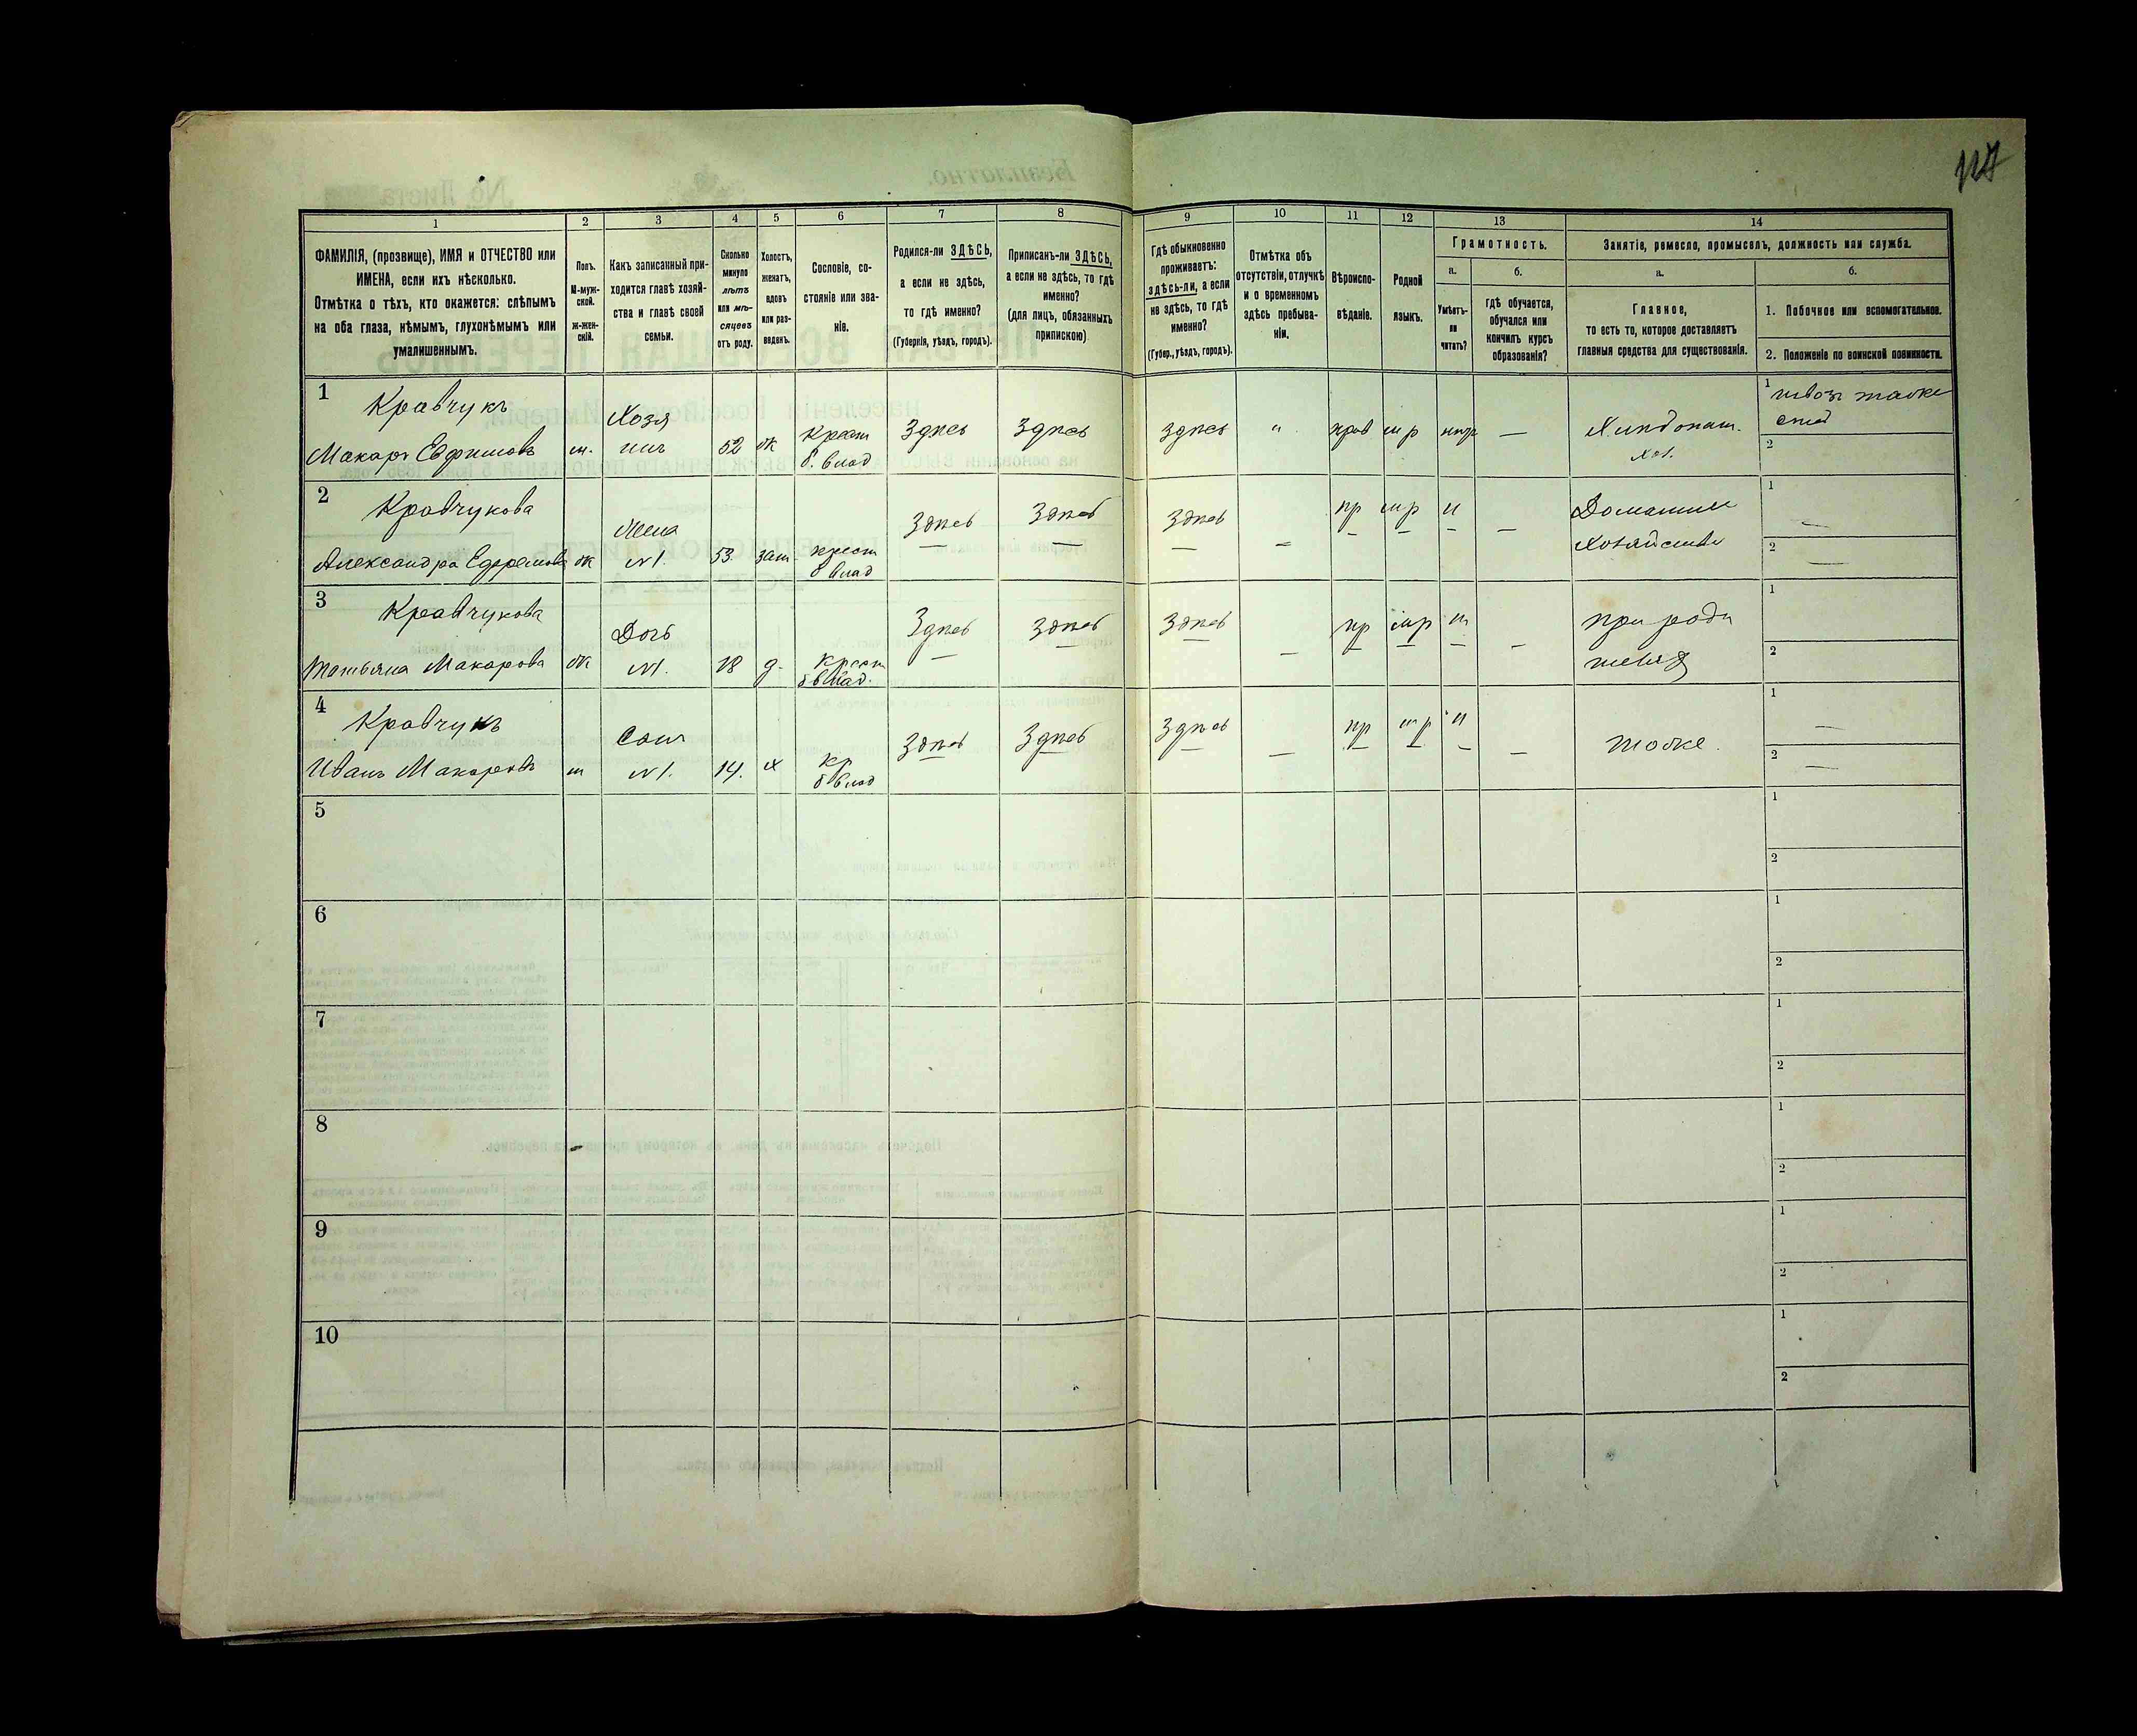 117
1
2
3
4
5
6
7
8
9
10
11
12
13
14
ФАМИЛІЯ, (прозвище), ИМЯ и ОТЧЕСТВО или
ИМЕНА, если ихъ нѣсколько.
Отмѣтка о тѣхъ, кто окажется: слѣпымъ
на оба глаза, нѣмымъ, глухонѣмымъ или
умалишеннымъ.
Полъ.
М-муж-
ской.
ж-жен-
скій.
Какъ записанный при-
ходится главѣ хозяй-
ства и главѣ своей
семьи.
Сколько
минуло
лѣтъ
или мѣ-
сяцевъ
отъ роду.
Холостъ,
женатъ,
вдовъ
или раз-
веденъ.
Сословіе, со-
стояніе или зва-
ніе.
Родился-ли ЗДѢСЬ,
а если не здѣсь,
то гдѣ именно?
(Губернія, уѣздъ, городъ).
Приписанъ-ли ЗДѢСЬ,
а если не здѣсь, то гдѣ
именно?
(для лицъ, обязанныхъ
припискою)
Гдѣ обыкновенно
проживаетъ:
здѣсь-ли, а если
не здѣсь, то гдѣ
именно?
(Губер., уѣздъ, городъ).
Отмѣтка объ
отсутствіи, отлучкѣ
и о временномъ
здѣсь пребыва-
ніи.
Вѣроиспо-
вѣданіе.
Родной
языкъ.
Грамотность.
а.
б.
Умѣетъ-
ли
читать?
гдѣ обучается,
обучался или
кончилъ курсъ
образованія?
Занятіе, ремесло, промыселъ, должность или служба.
а.
б.
Главное,
то есть то, которое доставляетъ
главныя средства для существованія.
1. Побочное или вспомогательное.
2. Положеніе по воинской повинности.
1
Кравчукъ
Макаръ Евфимовъ
м.
Хозя
инъ
52
ж
крест
б. влад
Здѣсь
Здѣсь
Здѣсь
"
прав
мр
—
1
2
2
Кравчукова
Александра Ефремова
ж
Жена
№1.
53
зам
крест
б влад
Здѣсь
Здѣсь
Здѣсь
—
пр
мр
н
—
Домашнее
Хозяйство
1 —
2 —
3
Кравчукова
Татьяна Макарова
ж
Дочь
№1.
18
д.
крест
б влад.
Здѣсь
Здѣсь
Здѣсь
—
пр
мр
н
—
при роди
теляхъ
1
2
4
Кравчукъ
Иванъ Макаровъ
м
Сынъ
№1.
14.
х
кр
б влад
Здѣсь
Здѣсь
Здѣсь
—
пр
мр
н
—
тоже.
1 —
2 —
5
1
2
6
1
2
7
1
2
8
1
2
9
1
2
10
1
2